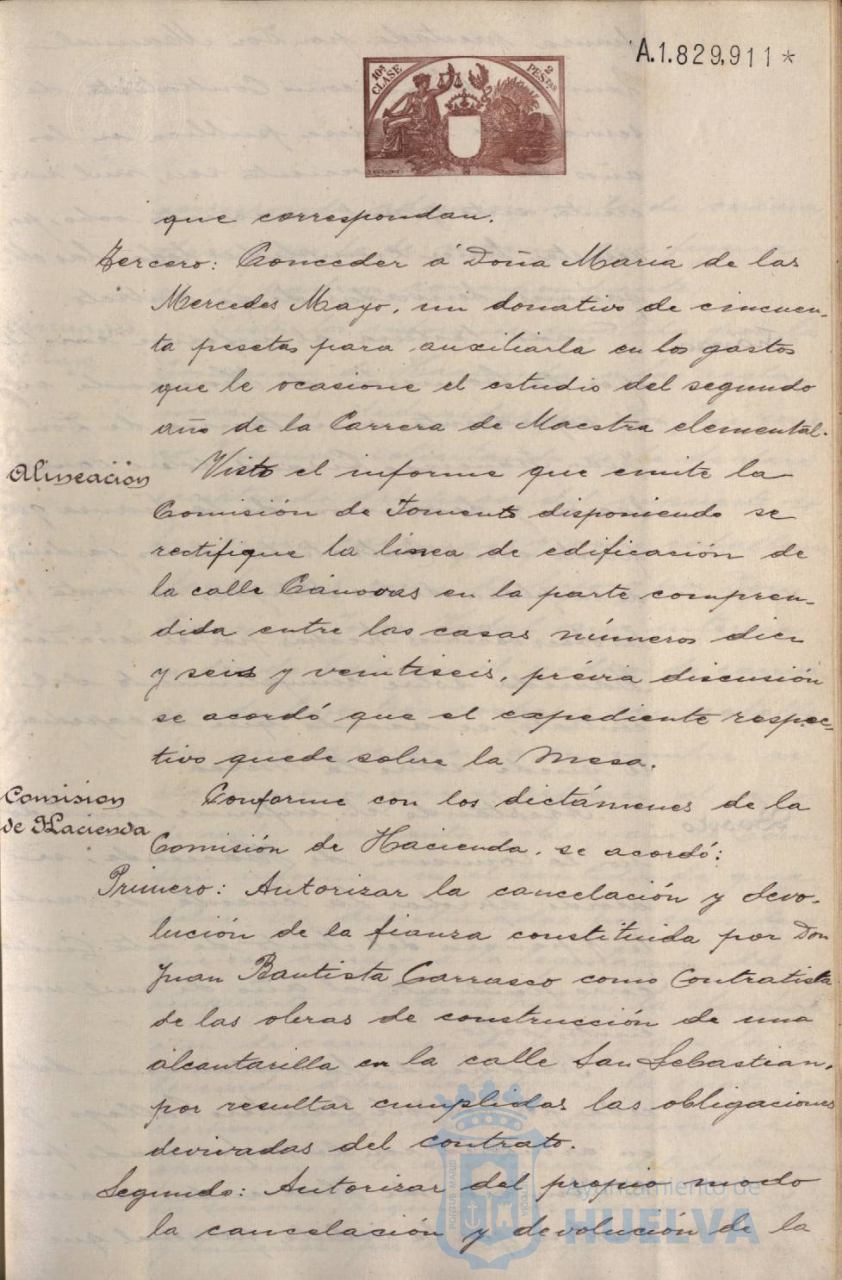 A.1.829,911*
10ª CLASE
2 PESETAS
que correspondan.
Tercero: Conceder á Doña María de las
Mercedes Mayo, un donativo de cincuen-
ta pesetas para auxiliarla en los gastos
que le ocasione el estudio del segundo
año de la Carrera de Maestra elemental.
Alineación
Visto el informe que emite la
Comisión de Fomento disponiendo se
rectifique la línea de edificación de
la calle Cánovas en la parte compren-
dida entre las casas números diez
y seis y veintiseis, prévia discusión
se acordó que el expediente respec-
tivo quede sobre la Mesa.
Comision
de Hacienda
Conforme con los dictámenes de la
Comisión de Hacienda, se acordó:
Primero: Autorizar la cancelación y devo-
lución de la fianza constituida por Don
Juan Bautista Carrasco como Contratista
de las obras de construcción de una
alcantarilla en la calle San Sebastian,
por resultar cumplidas las obligaciones
derivadas del contrato.
Segundo: Autorizar del propio modo
la cancelación y devolución de la
Ayuntamiento de
HUELVA